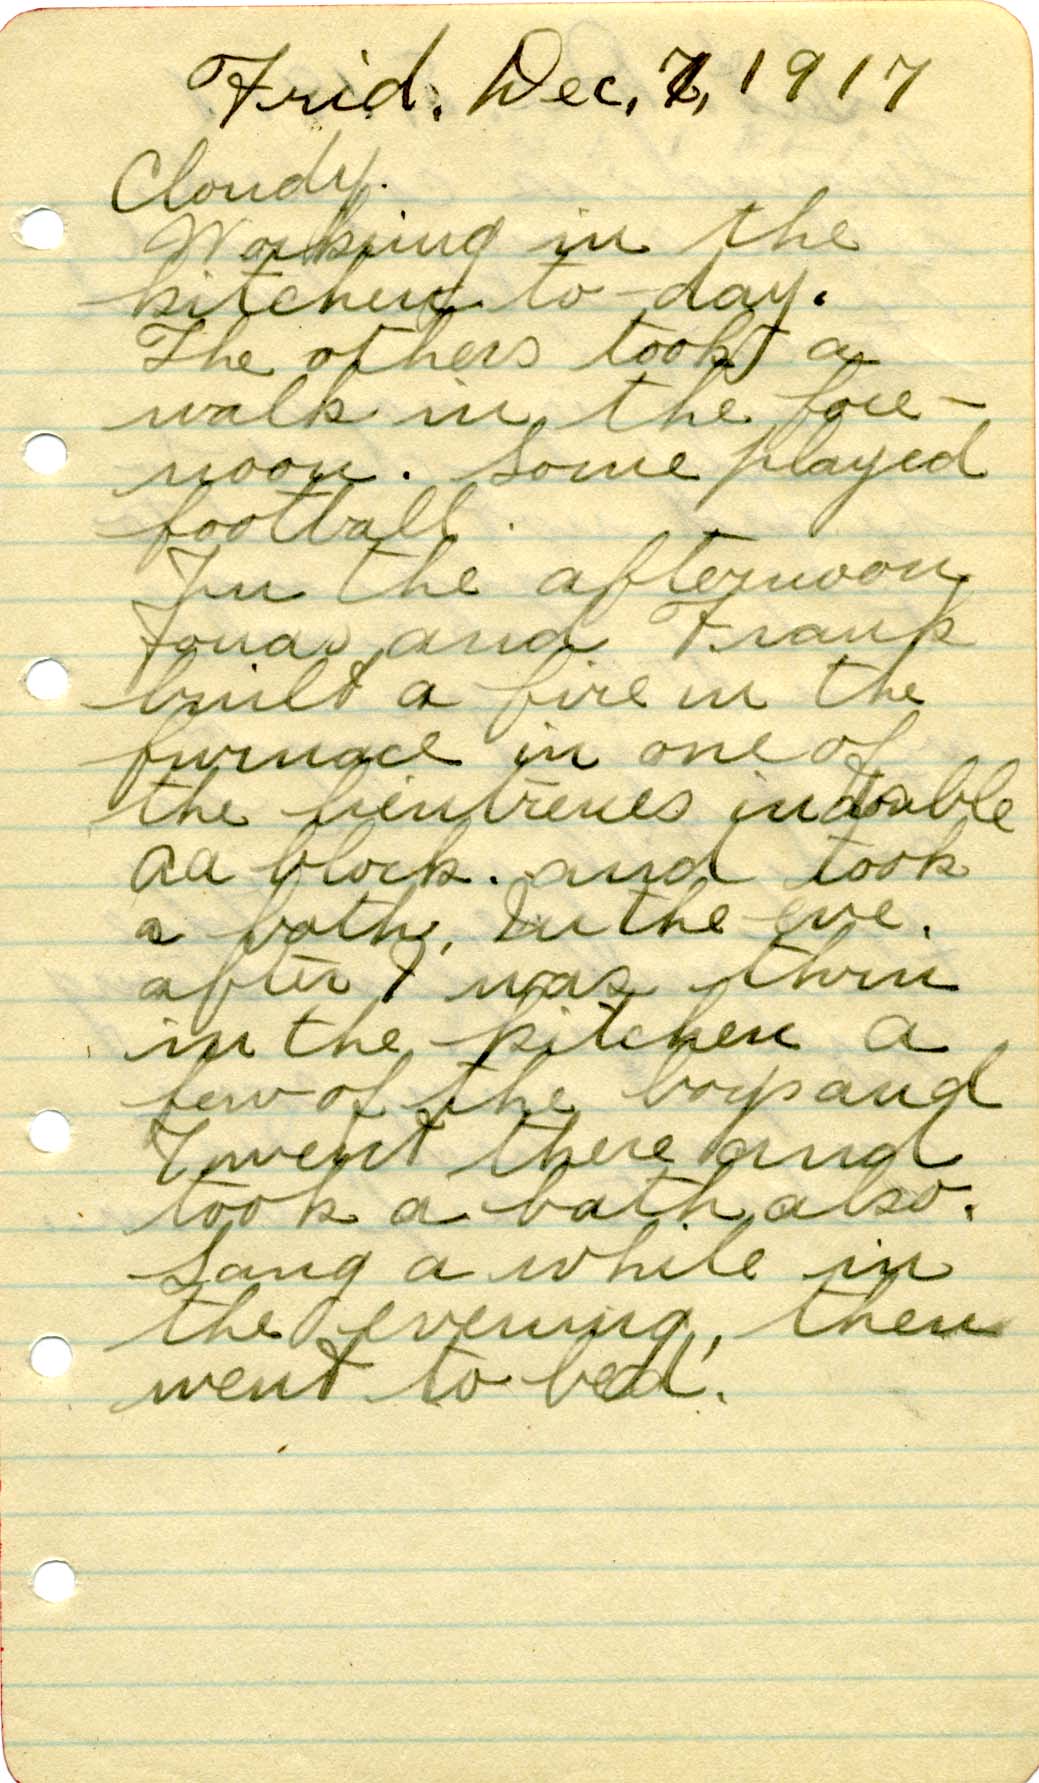 Frid. Dec. 7, 1917
Cloudy.
Working in the
kitchen to-day.
The others took a
walk in the fore-
noon. Some played
football.
In the afternoon
Jonas and Frank
built a fire in the
furnace in one of
the lientrenes in double
aa block. and took
a bath. In the eve.
after I was thru
in the kitchen a
few of the boys and
I went there and
took a bath also.
Sang a while in
the evening, then
went to bed.